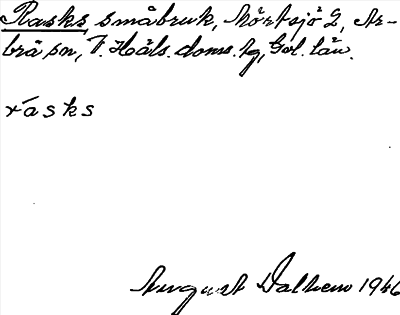 Rasks småbruk, Mörtsjö 2, Ar-
brå sn, V. Häls. doms. hg, Gvl. län.
rásks
August Dalhem 1946